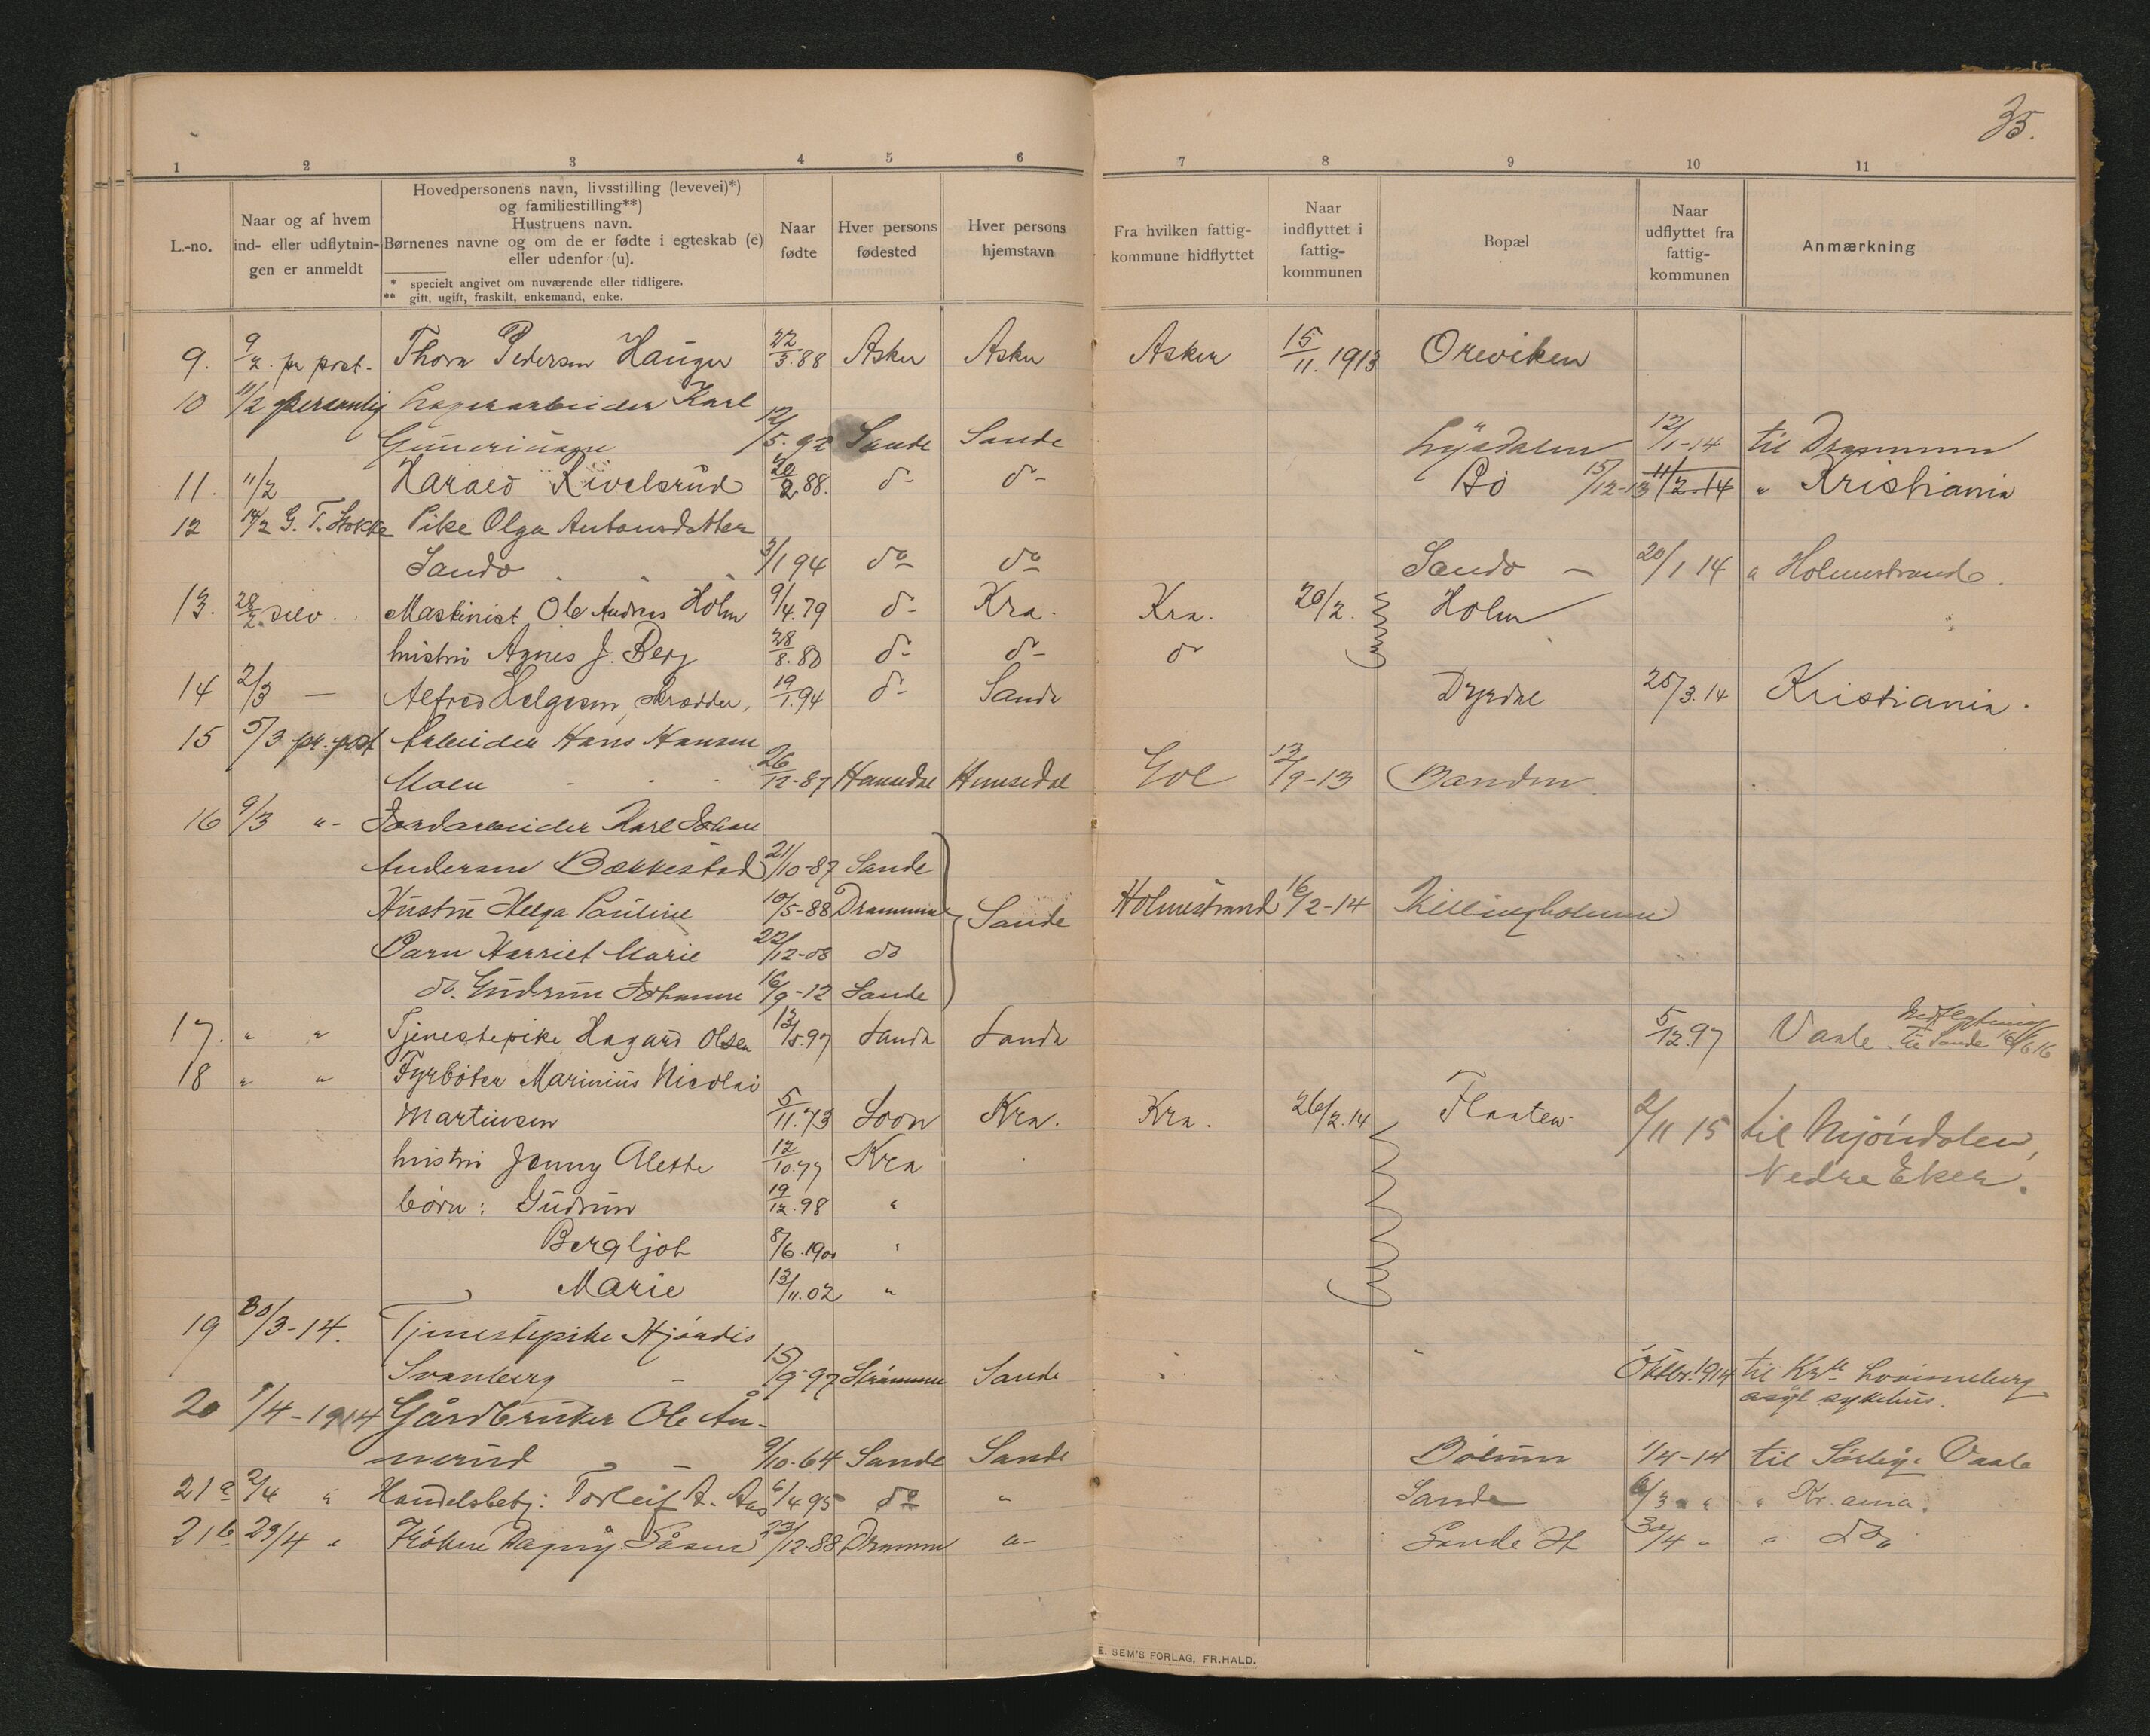 35.
1 2 3 4 5 6 7 8 9 10 11
L.-no.
Naar og af hvem
ind- eller udflytnin-
gen er anmeldt
Hovedpersonens navn, livsstilling (levevei)*)
og familiestilling**)
Hustruens navn.
Børnenes navne og om de er fødte i egteskab (e)
eller udenfor (u).
* specielt angivet om nuværende eller tidligere.
** gift, ugift, fraskilt, enkemand, enke.
Naar
fødte
Hver persons
fødested
Hver persons
hjemstavn
Fra hvilken fattig-
kommune hidflyttet
Naar
indflyttet i
fattig-
kommunen
Bopæl
Naar
udflyttet fra
fattig-
kommunen
Anmærkning
9. 9/2. pr post. Thora Pedersen Hauger 22/3.88 Asker Asker Asker 15/11.1913 Oreviken
10 11/2 personlig Lagerarbeider Karl
12/5.92 Sande Sande 12/1-14 til Drammen
11. 11/2 Harald 20/2.88. d- d- Bø 15/12-13 11/2-14 " Kristiania
12 14/2 G. T. Hokke Pike Olga Antonsdatter
Sando 3/1 94 do do Sando - 20/1 14 " Holmestrand.
13. 28/2. selv. Maskinist Ole Andreas Holm 9/4.79 d- Kra. Kra. 20/2. Holm
hustru Agnes J. Berg 28/8.80 d- d- d-
14 2/3 — Alfred Helgesen, skrædder, 19/1.94 d- Sande Dyrdal 25/3.14 Kristiania.
15 5/3 pr. post Arbeider Hans Hansen
Moen 26/12-87 Hemsedal Hemsedal Gol 13/9-13
16 9/3 "- Jordarbeider Karl Johan
Andersen Bækkestad 21/10-87 Sande
Hustru Helga Pauline 10/5-88 Drammen Sande Holmestrand 16/2-14 Killingholmen
Barn Harriet Marie 22/12-08 do
do. Gudrun Johanne 16/9-12 Sande
17. " " Tjenestepike Hagard Olsen 13/5.97 Sande Sande 5/12.97 Vaale Indflytning
til Sande 16/6 16
18 " " Fyrbøter Marinius Nicolai
Martinsen 5/11.73 Soon Kra. Kra. 26/2.14 Flaaten. 2/11 15 til Mjøndalen,
hustru Jenny Alette 12/10.77 Kra Nedre Eker.
børn: Gudrun 19/12.98 "
Bergljot 8/6.1900 "
Marie 13/11.02 "
19 30/3-14. Tjenestepike Hjørdis
Svanberg 15/9-97 Strømmen Sande Oktbr. 1914 til Kr.
asyl sykehus.
20 1/4-1914 Gårdbruker Ole An-
nerud 9/10-64 Sande Sande Bolum 1/4-14 til Vaale
21a 2/4 " Handelsbetj: Torleif A. Aas 6/4 95 do " Sande 6/3 " " Kr.ania.
21b 29/4 " Frøken Dagny 23/12-88 Drammen "- Sande St 30/4 " " do
E. SEM'S FORLAG, FR.HALD.